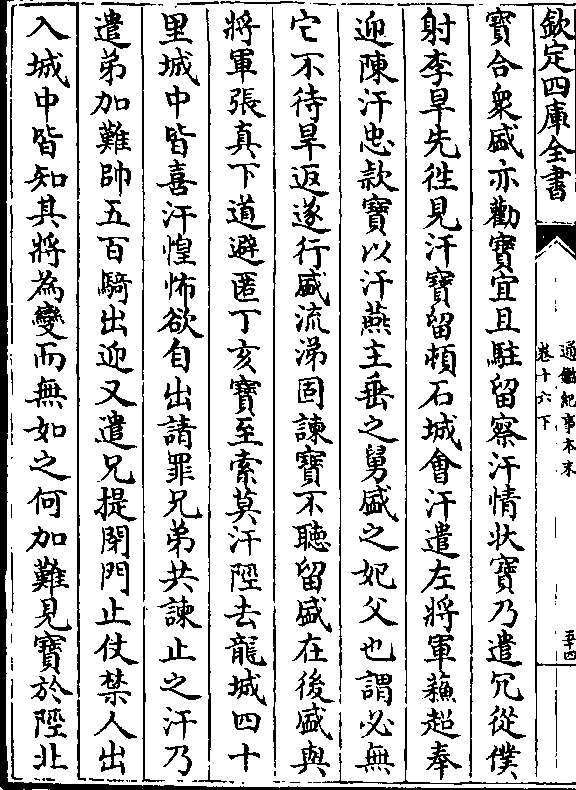 欽定四庫全書
通鑑紀事本末
卷十六下
五十四
寶合衆盛亦勸寶宜且駐留察汗情狀寶乃遣冗從僕
射李旱先往見汗寶留頓石城會汗遣左將軍蘇超奉
迎陳汗忠款寶以汗燕主垂之舅盛之妃父也謂必無
它不待旱返遂行盛流涕固諫寶不聽留盛在後盛與
將軍張真下道避匿丁亥寶至索莫汗陘去龍城四十
里城中皆喜汗惶怖欲自出請罪兄弟共諫止之汗乃
遣弟加難帥五百騎出迎又遣兄提閉門止仗禁人出
入城中皆知其將為變而無如之何加難見寶於陘北